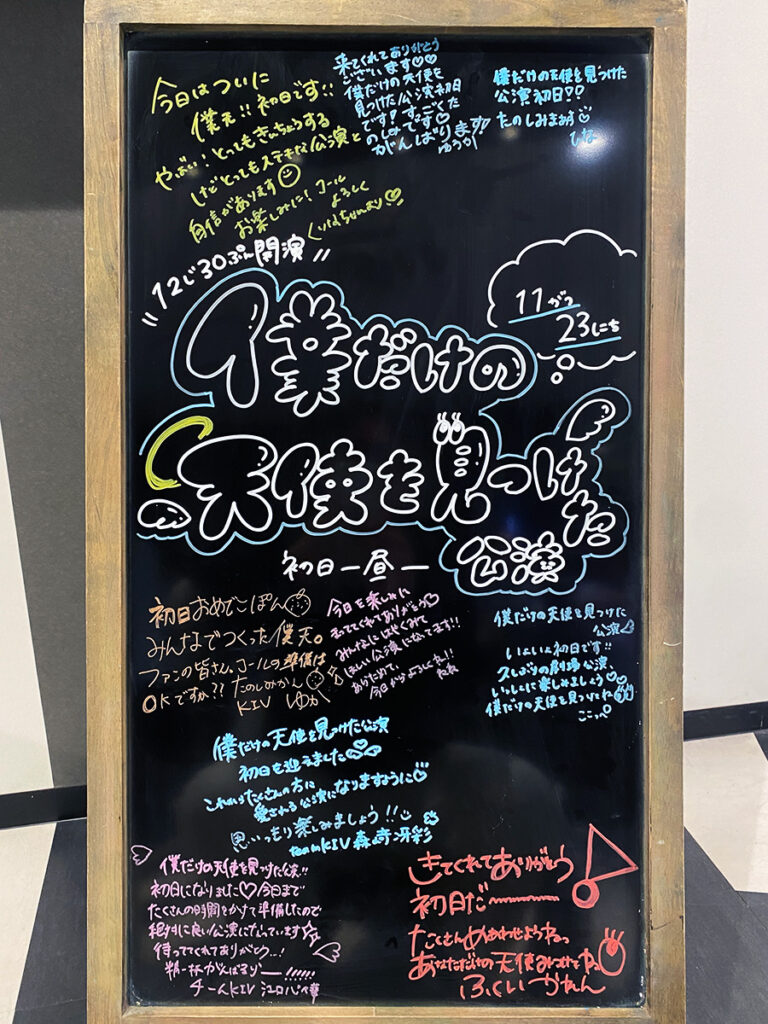 今日はついに
僕天!!初日です!!
やばい!とってもきんちょうする
けどとってもステキな公演と
自信があります
お楽しみに!コール
よろしく
来てくれてありがとう
ございます♡♡
僕だけの天使を
見つけた公演初日
です!すっごくた
のしみです♡
がんばります!!
ゆうか
僕だけの天使を見つけた
公演初日??
たのしみまぁす
ひな
"12じ30ぷん開演"
11がつ
23にち
僕だけの
天使を見つけた
公演
初日ー昼ー
初日おめでこぽん
みんなでつくった僕天。
ファンの皆さん、コールの準備は
OKですか??たのしみかん
KIV ゆか
今日を楽しみに
まっててくれてありがとう♡
みんなにはやくみて
ほしい公演になってます!!
あらためて、
今日からよろしくね!!
僕だけの天使を見つけた
公演
いよいよ初日です!!
久しぶりの劇場公演
いっしょに楽しみましょう♡♡
僕だけの天使を見つけたね
こころ
僕だけの天使を見つけた公演
初日を迎えました
これからたくさんの方に
愛される公演になりますように
思いっきり楽しみましょう!!
teamKIV 森﨑冴彩
僕だけの天使を見つけた公演!!
初日になりました♡今日まで
たくさんの時間をかけて準備したので
絶対に良い公演になっています☆
待っててくれてありがとう…!
精一杯がんばるゾー!!!!!!
チームKIV 江口心々華
きてくれてありがとう
初日だ〜
たくさんめあわせようねっ
あなただけの天使みつけてねっ
ふくいかれん